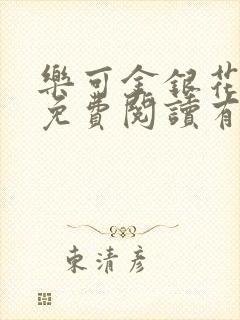 樂可金銀花
免費閱讀有
東清彥